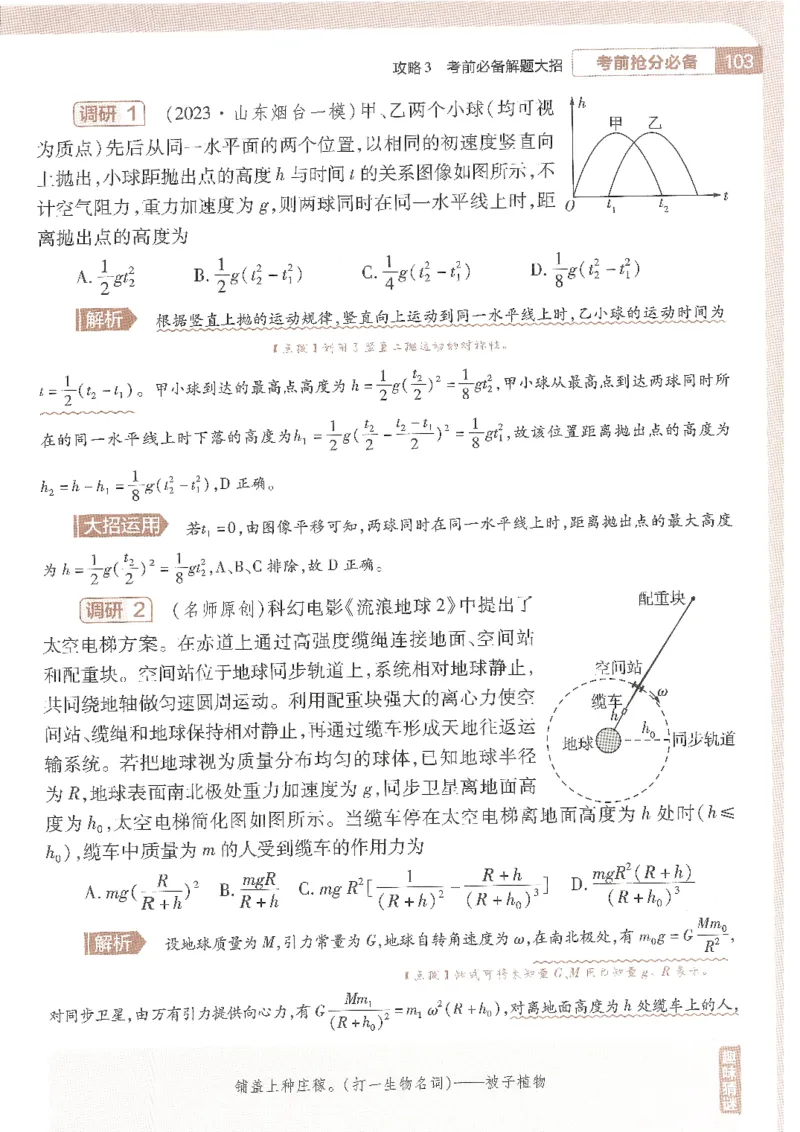 攻略3 考前必备解题大招 考前抢分必备 103
调研 1 (2023·山东烟台一模)甲、乙两个小球(均可视
为质点)先后从同一水平面的两个位置,以相同的初速度竖直向
上抛出,小球距抛出点的高度h与时间t的关系图像如图所示,不
计空气阻力,重力加速度为g,则两球同时在同一水平线上时,距
离抛出点的高度为
h
甲 乙
O t₁ t₂ t
A. 1/2 gt₂² B. 1/2 g(t₂²-t₁²) C. 1/4 g(t₂²-t₁²) D. 1/8 g(t₂²-t₁²)
解析 根据竖直上抛的运动规律,竖直向上运动到同一水平线上时,乙小球的运动时间为
【点拨】利用了竖直上抛运动的对称性。
t=1/2(t₂-t₁)。甲小球到达的最高点高度为h=1/2 g(t₂/2)²=1/8 gt₂²,甲小球从最高点到达两球同时所
在的同一水平线上时下落的高度为h₁=1/2 g(t₂/2-(t₂-t₁)/2)²=1/8 gt₁²,故该位置距离抛出点的高度为
h₂=h-h₁=1/8 g(t₂²-t₁²),D正确。
大招运用 若t₁=0,由图像平移可知,两球同时在同一水平线上时,距离抛出点的最大高度
为h=1/2 g(t₂/2)²=1/8 gt₂²,A、B、C排除,故D正确。
调研 2 (名师原创)科幻电影《流浪地球2》中提出了
太空电梯方案。在赤道上通过高强度缆绳连接地面、空间站
和配重块。空间站位于地球同步轨道上,系统相对地球静止,
共同绕地轴做匀速圆周运动。利用配重块强大的离心力使空
间站、缆绳和地球保持相对静止,再通过缆车形成天地往返运
输系统。若把地球视为质量分布均匀的球体,已知地球半径
为R,地球表面南北极处重力加速度为g,同步卫星离地面高
度为h₀,太空电梯简化图如图所示。当缆车停在太空电梯离地面高度为h处时(h≤
h₀),缆车中质量为m的人受到缆车的作用力为
配重块
空间站
缆车 ω
h
地球 h₀ 同步轨道
A. mg(R/(R+h))² B. mgR/(R+h) C. mgR²[1/(R+h)²-(R+h)/(R+h₀)³] D. mgR²(R+h)/(R+h₀)³
解析 设地球质量为M,引力常量为G,地球自转角速度为ω,在南北极处,有m₀g=G Mm₀/R²,
【点拨】此式可将未知量G、M用已知量g、R表示。
对同步卫星,由万有引力提供向心力,有G Mm₁/(R+h₀)²=m₁ω²(R+h₀),对离地面高度为h处缆车上的人,
铺盖上种庄稼。(打一生物名词)——被子植物
趣味猜谜